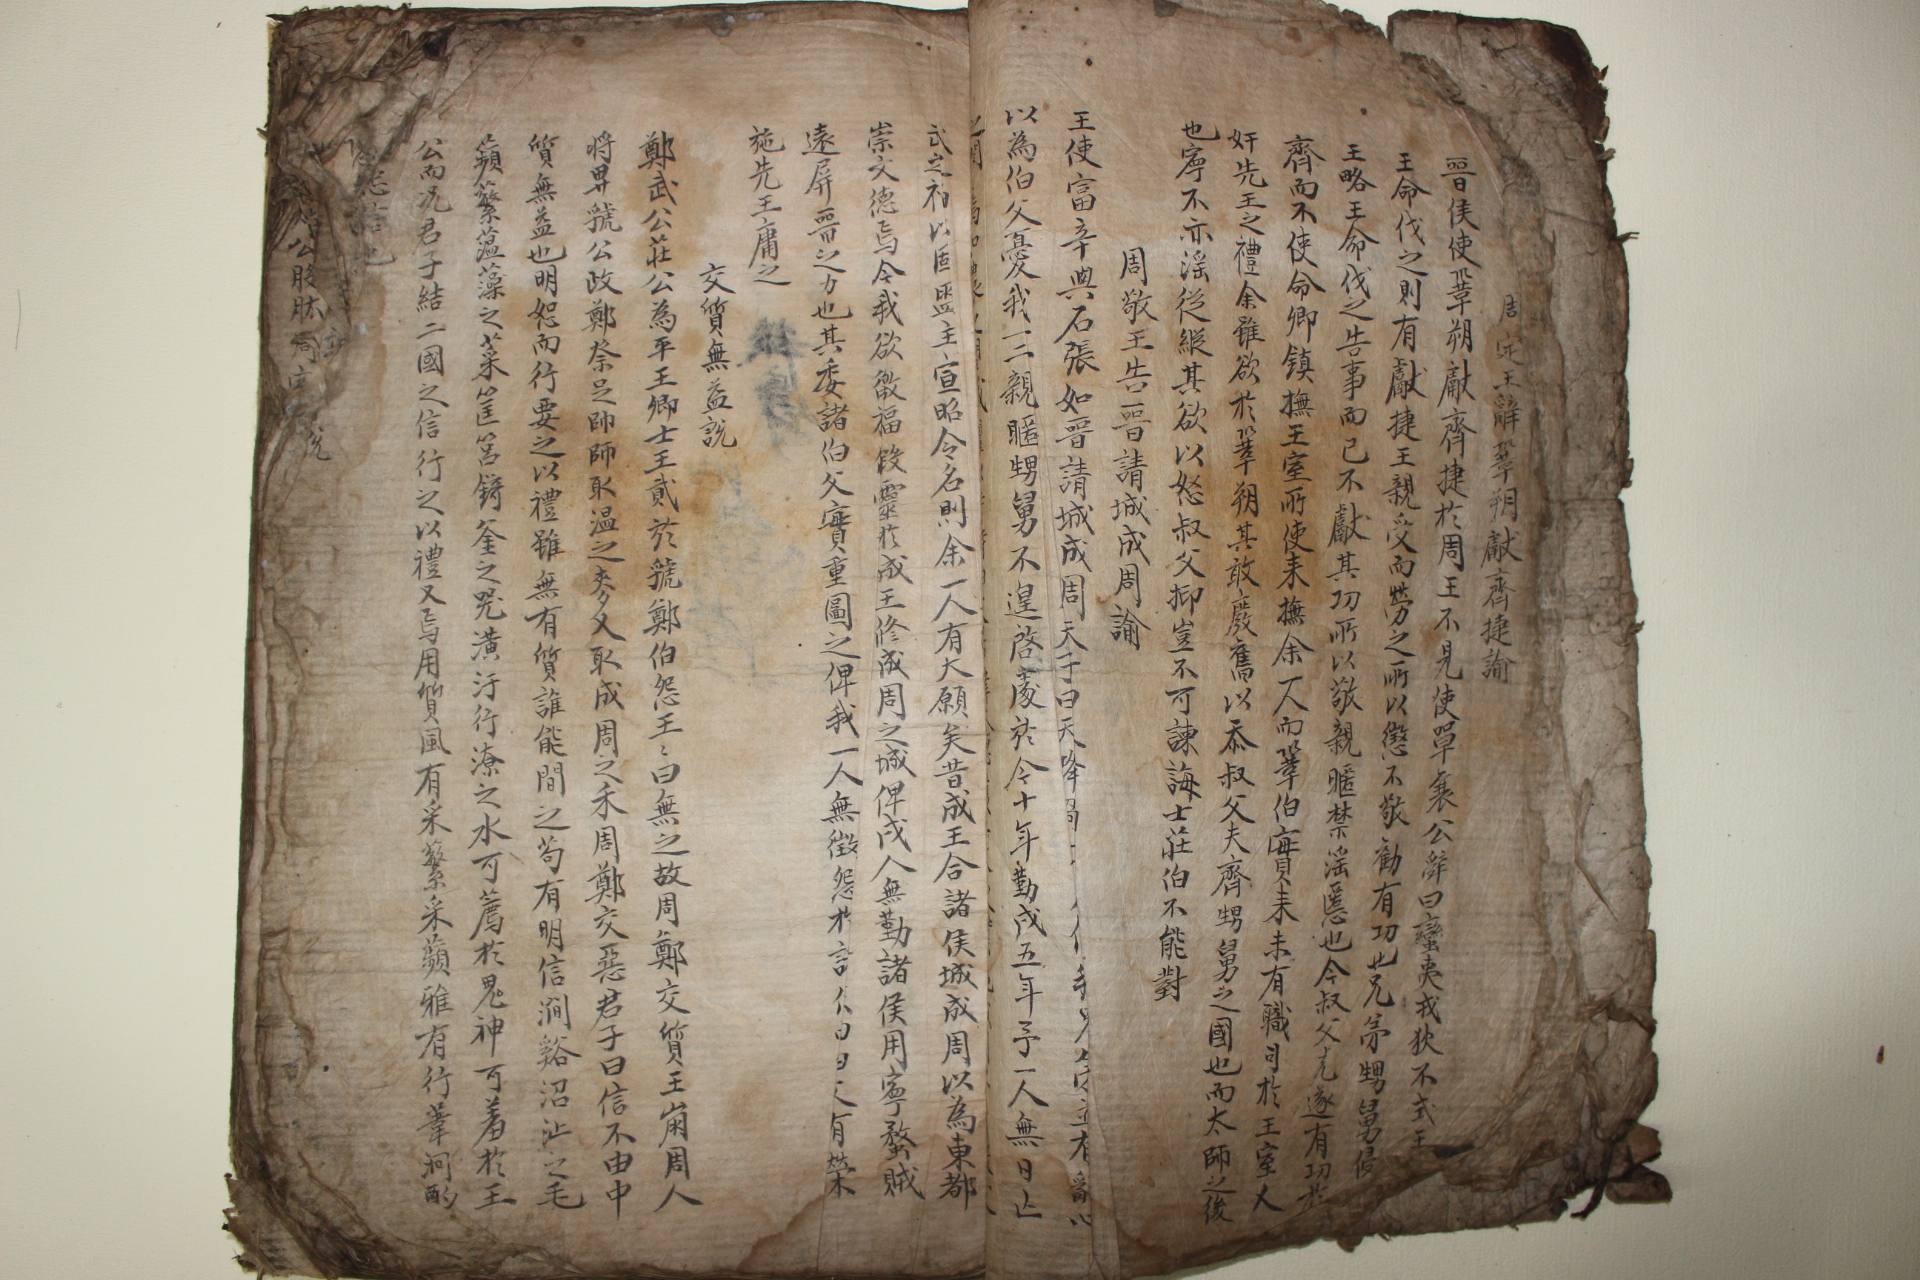 周定王辭鞏朔獻齊捷諭
晉侯使鞏朔獻齊捷於周王不見使單襄公辭曰蠻夷戎狄不式王
王命伐之則有獻捷王親受而勞之所以懲不敬勸有功也兄弟甥舅侵
王略王命伐之告事而已不獻其功所以敬親暱禁淫慝也今叔父克遂有功於
齊而不使命卿鎮撫王室所使来撫余一人而鞏伯實来未有職司於王室又
奸先王之禮余雖欲於鞏朔其敢廢舊以忝叔父夫齊甥舅之國也而太師之後
也寧不亦淫從縱其欲以怒叔父抑豈不可諫誨士莊伯不能對
周敬王告晉請城成周諭
王使富辛與石張如晉請城成周天子曰天降禍
以為伯父憂我一二親暱甥舅不遑啓處於今十年勤戍五年予一人無日
武之福以固盟主宣昭令名則余一人有大願矣昔成王合諸侯城成周以為東都
崇文德焉今我欲徼福假靈於成王修成周之城俾戍人無勤諸侯用寧蝥賊
遠屏晉之力也其委諸伯父實重圖之俾我一人無徵怨於 有榮
施先王庸之
交質無益說
鄭武公莊公為平王卿士王貳於虢鄭伯怨王〻曰無之故周鄭交質王崩周人
將畀虢公政鄭祭足帥師取温之麥又取成周之禾周鄭交惡君子曰信不由中
質無益也明恕而行要之以禮雖無有質誰能間之苟有明信澗谿沼沚之毛
蘋蘩薀藻之菜筐筥錡釜之器潢汙行潦之水可薦於鬼神可羞於王
公而况君子結二國之信行之以禮又焉用質風有采蘩采蘋雅有行葦泂酌
忠信也
公股肱周室